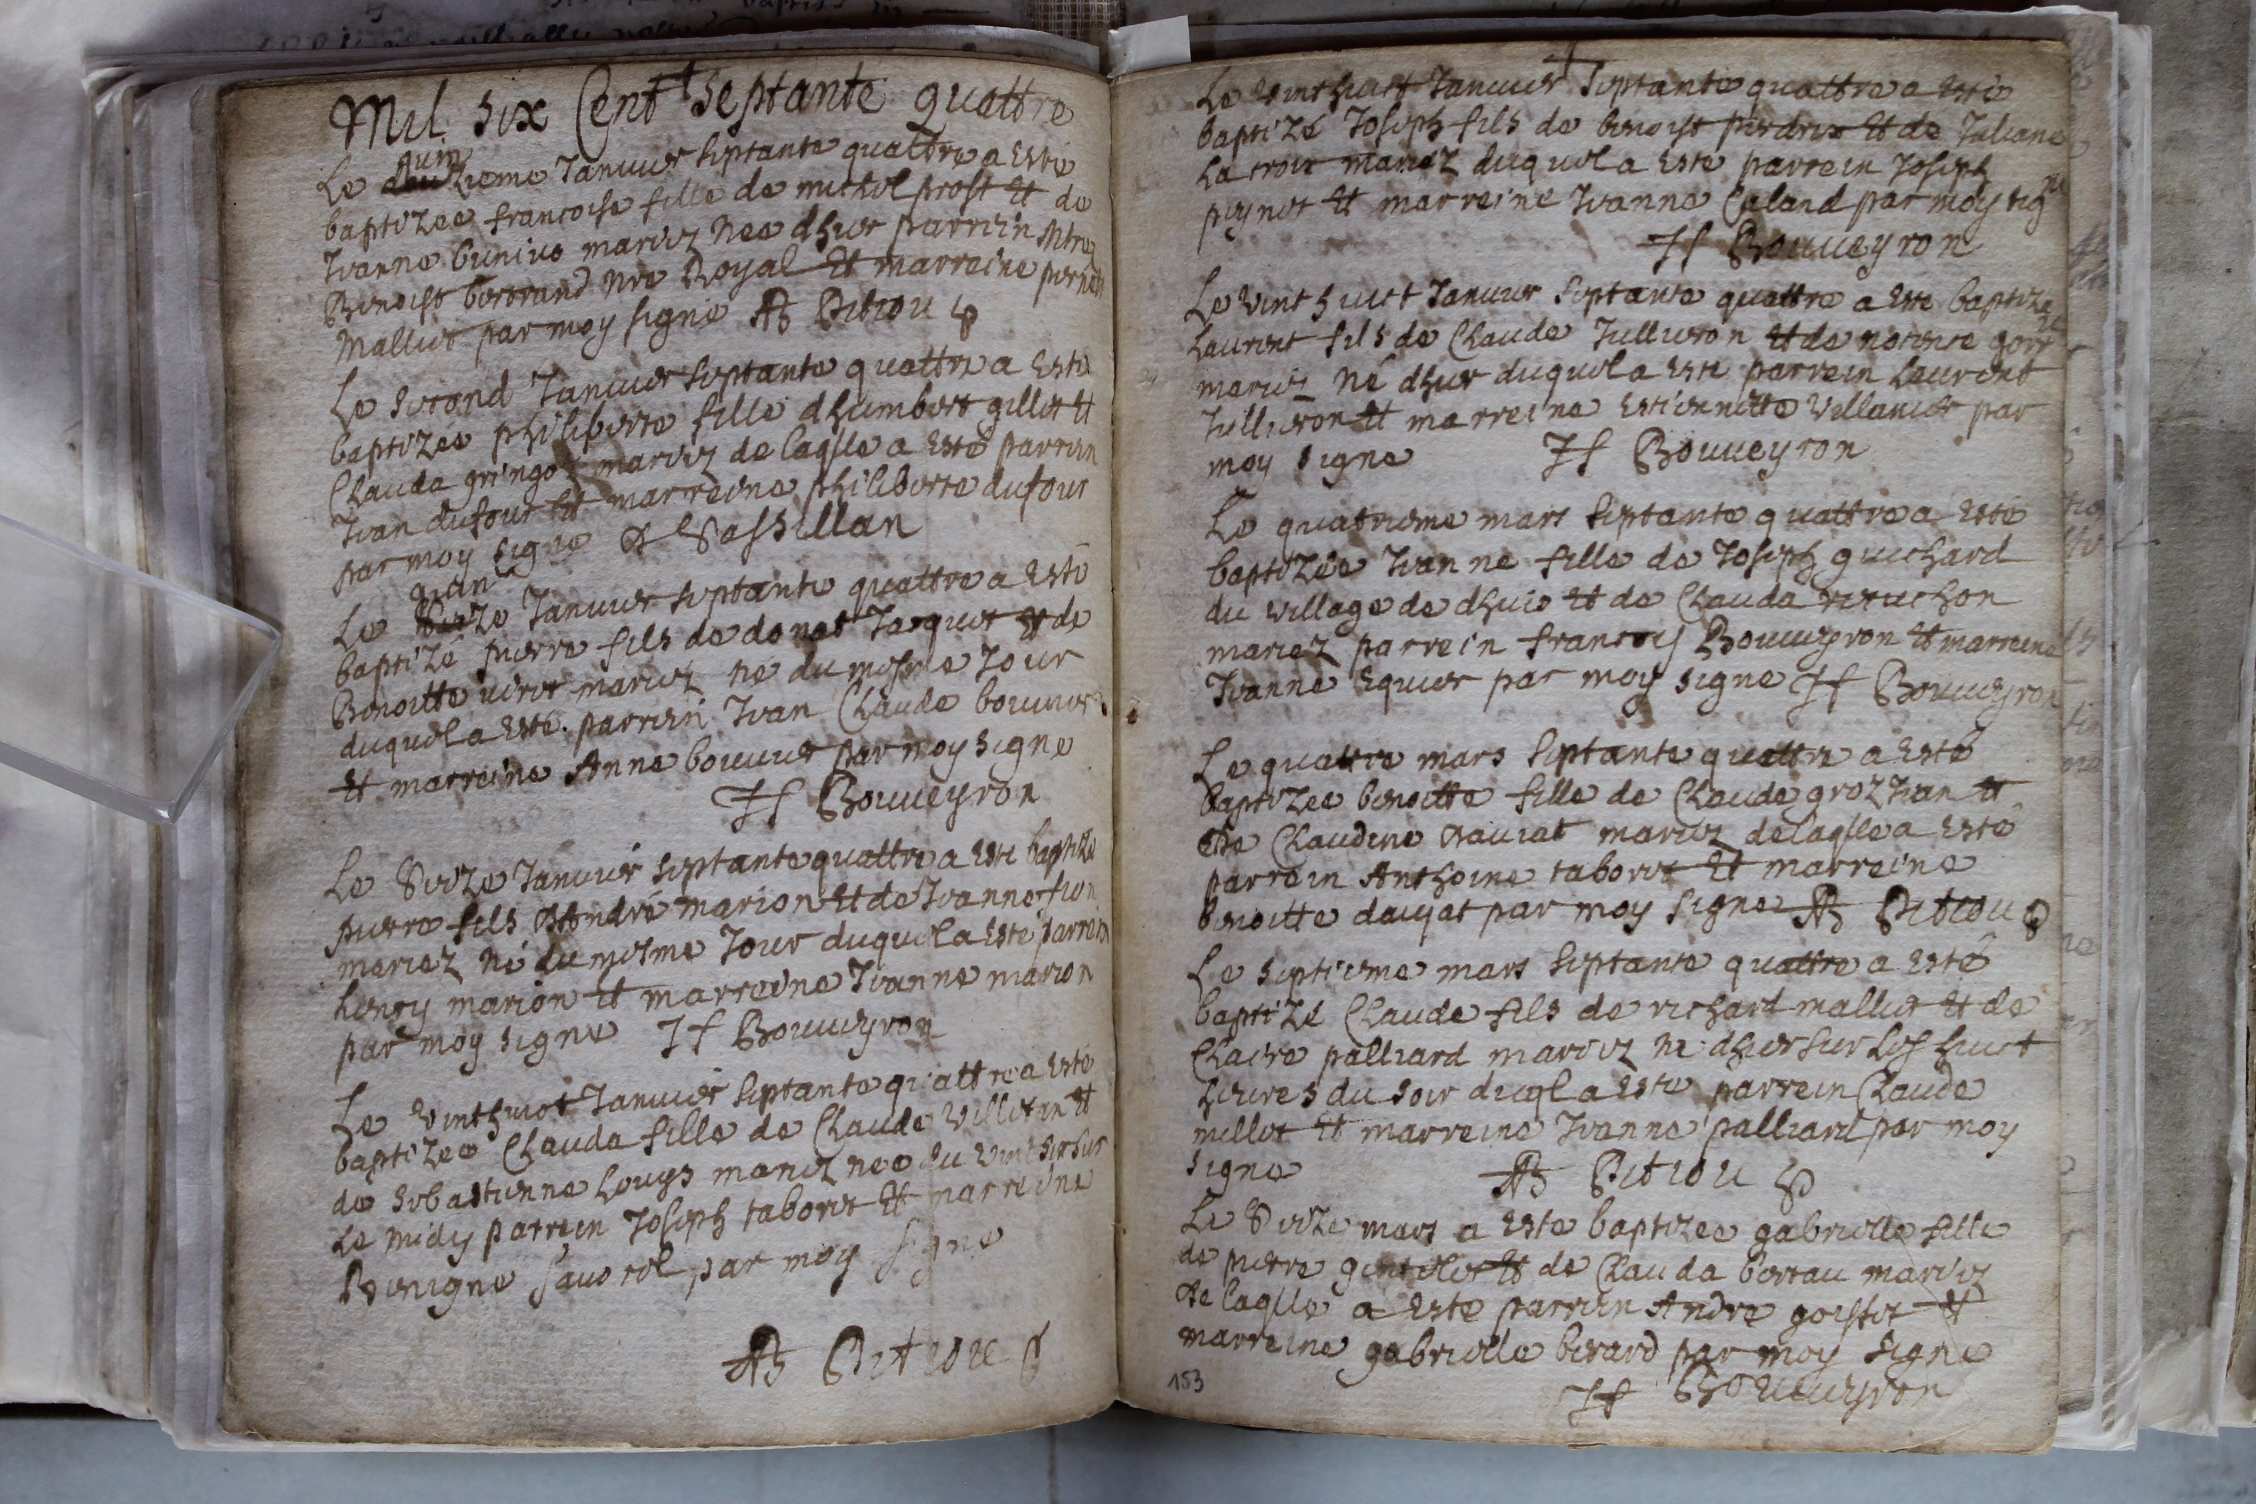 Mil six Cent septante quattre
quin
Le Zieme Januier septante quattre a esté
baptizée francoise fille de michel prost et de
Ieanne mariez nee dhier parrein Mtre
Benoist bertrand nre Royal et marreine
Mallet par moy signe AB Petiou
Le second Januier septante quattre a esté
baptizée philiberte fille dhumbert gillet et
Clauda gringoz mariez de laqlle a esté parrein
Iean dufour et marreine philiberte dufour
par moy signe
Le Januier septante quattre a esté
baptizé pierre fils de donat Jacquet et de
Benoitte mariez ne du mesme Jour
duquel a esté parrein Iean Claude bouuier
et marreine Anne bouuier par moy signe
Jf Bouueyron
Le Seize Januier septante quattre a esté baptizé
pierre fils dAndré marion et de Ieanne
mariez né du mesme Jour duquel a esté parrein
henry marion et marreine Ieanne marion
par moy signe Jf Bouueyron
Le Vinthuict Januier septante quattre a esté
baptizée Clauda fille de Claude et
de sebastienne Louys mariez nee du sur
Le midy parrein Joseph taboret et marreine
Benigne par moy signe
AB Petiou
Le Vinthuict Januier septante quattre a esté
baptizé Joseph fils de benoist perdrix et de Juliane
Lacroix mariez duquel a esté parrein Joseph
et marreine Ieanne Caland par moy signe
Jf Bouueyron
Le vint huict Januier septante quattre a esté baptizé
Laurent fils de Claude Tullieron et de
mariez né dhier duquel a esté parrein Laurent
Tullieron et marreine estiennette Villanier par
moy signe Jf Bouueyron
Le quatrieme mars septante quattre a esté
baptizée Ieanne fille de Joseph guichard
du village de et de Clauda
mariez parrein francois Bouueyron et marreine
Ieanne Equier par moy signe Jf Bouueyron
Le quattre mars septante quattre a esté
baptizée benoitte fille de Claude grozIean et
de Claudine mariez de laqlle a esté
parrein Anthoine taboret et marreine
benoitte par moy signe AB Petiou
Le septieme mars septante quattre a esté
baptizé Claude fils de richard mallet et de
Claire palliard mariez né dhier sur les huict
heures du soir duql a esté parrein Claude
millet et marreine Ieanne palliard par moy
signe AB Petiou
Le Seize mars a este baptizee gabrielle fille
de pierre et de Clauda mariez
de laqlle a este parrein Andre et
marreine gabrielle berard par moy signe
Jf Bouueyron
153